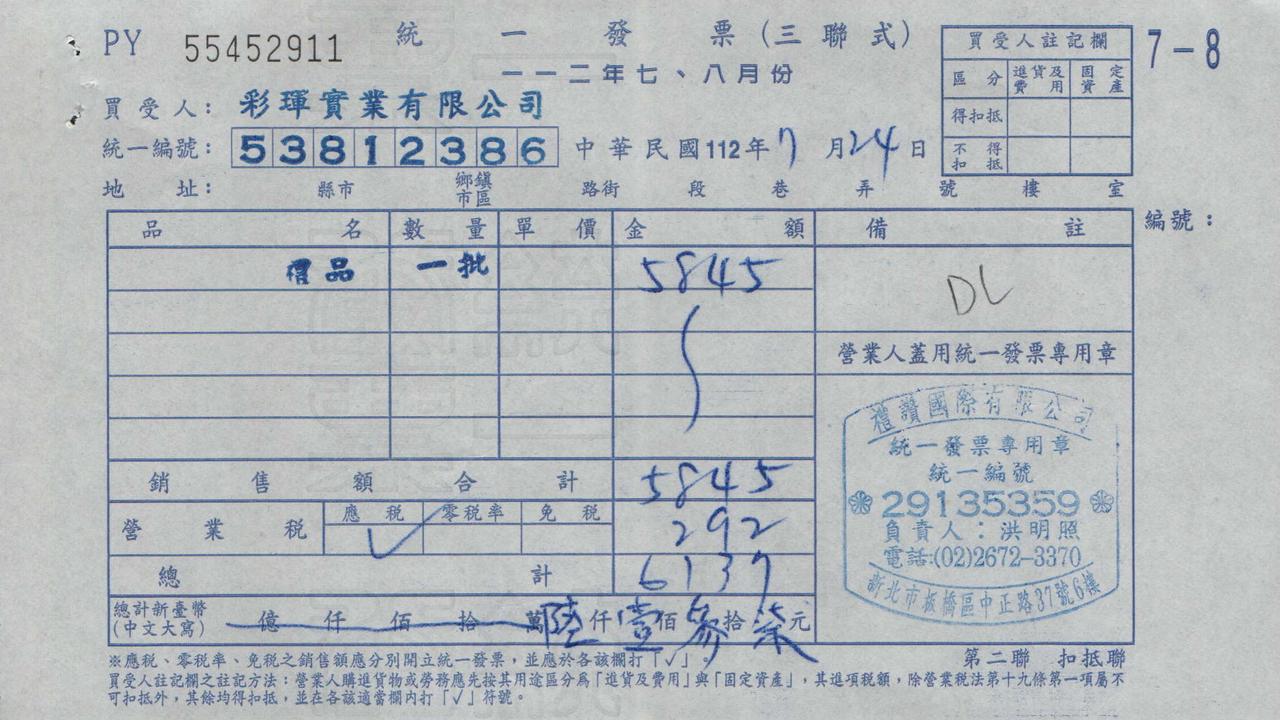 PY 55452911 統一發票(三聯式)
7-8
一一二年七、八月份
買受人: 彩琿實業有限公司
統一編號: 53812386 中華民國112年7月24日
地址: 縣市 鄉鎮市區 路街 段 巷 弄 號 樓 室
買受人註記欄
區分 進貨及費用 固定資產
得扣抵
不得扣抵
編號:
品名 數量 單價 金額 備註
禮品 一批 5845
DL
營業人蓋用統一發票專用章
銷售額合計 5845
營業稅 應稅 零稅率 免稅 292
✓
總計 6137
總計新臺幣(中文大寫) 億仟佰拾萬陸仟壹佰參拾柒元
禮讚國際有限公司
統一發票專用章
統一編號
29135359
負責人:洪明照
電話:(02)2672-3370
新北市板橋區中正路37號6樓
第二聯 扣抵聯
※應稅、零稅率、免稅之銷售額應分別開立統一發票,並應於各該欄打「✓」
買受人註記欄之註記方法:營業人購進貨物或勞務應先按其用途區分為「進貨及費用」與「固定資產」,其進項稅額,除營業稅法第十九條第一項屬不
可扣抵外,其餘均得扣抵,並在各該適當欄內打「✓」符號。